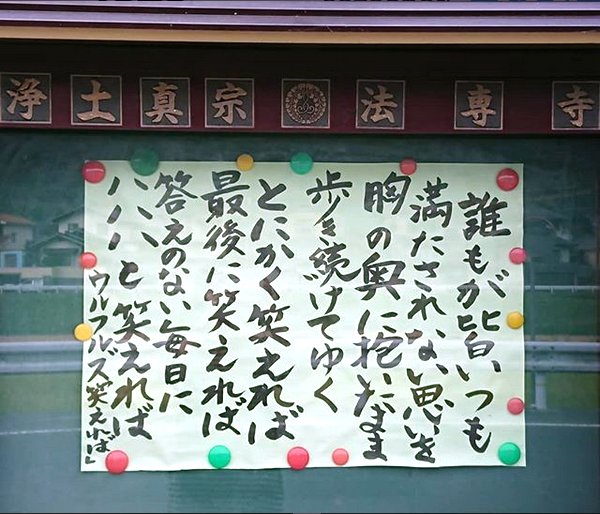 浄土真宗 法専寺
誰もが皆いつも
満たされない思いを
胸の奥に抱いたまま
歩き続けてゆく
とにかく笑えれば
最後に笑えれば
答えのない毎日に
ハハハと笑えれば
ウルフルズ「笑えれば」